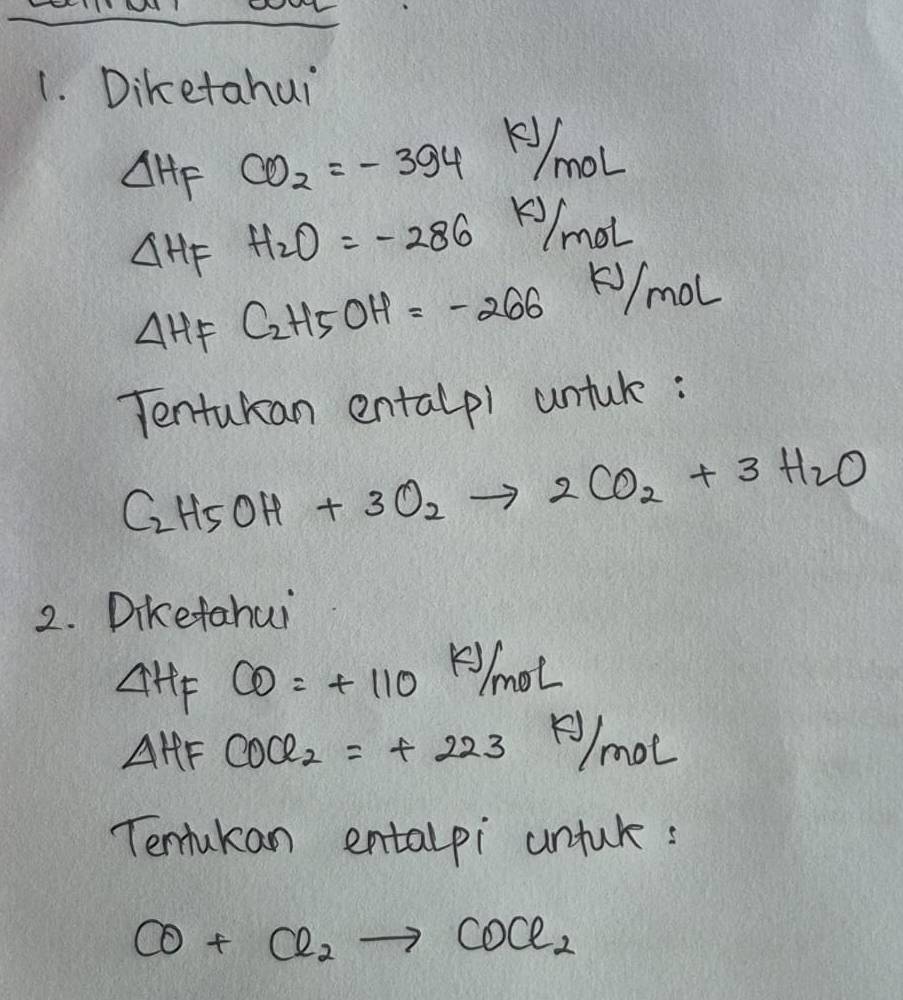 1. Diketahui
ΔHF CO₂ = - 394 KJ/moL
ΔHF H₂O = - 286 KJ/moL
ΔHF C₂H₅OH = - 266 KJ/moL
Tentukan entalpi untuk :
C₂H₅OH + 3O₂ → 2 CO₂ + 3 H₂O
2. Diketahui
ΔHF CO = + 110 KJ/moL
ΔHF COCl₂ = + 223 KJ/moL
Tentukan entalpi untuk :
CO + Cl₂ → COCl₂